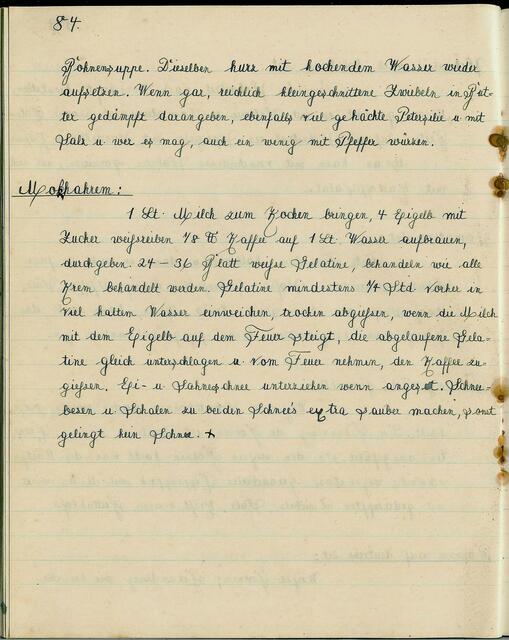 84.
Bohnensuppe. Dieselben kurz mit kochendem Wasser wieder
aufsetzen. Wenn gar, reichlich kleingeschnittene Zwiebeln in But-
ter gedämpft darangeben, ebenfalls viel gehackte Petersilie u. mit
Salz u. wer es mag, auch ein wenig mit Pfeffer würzen.
Mokkakrem:
1 Lt. Milch zum Kochen bringen, 4 Eigelb mit
Zucker weißreiben 1/8 ℔ Kaffee auf 1 Lt Wasser aufbrauen,
durchgeben. 24 – 36 Blatt weiße Gelatine, behandeln wie alle
Krem behandelt werden. Gelatine mindestens 1/4 Std vorher in
viel kaltem Wasser einweichen, trocken abgießen, wenn die Milch
mit dem Eigelb auf dem Feuer steigt, die abgelaufene Gela-
tine gleich unterschlagen u. vom Feuer nehmen, den Kaffee zu-
gießen. Ei- u. Sahneschnee unterziehen wenn angest. Schnee-
besen u. Schalen zu beiden Schnee's extra sauber machen, sonst
gelingt kein Schnee. +